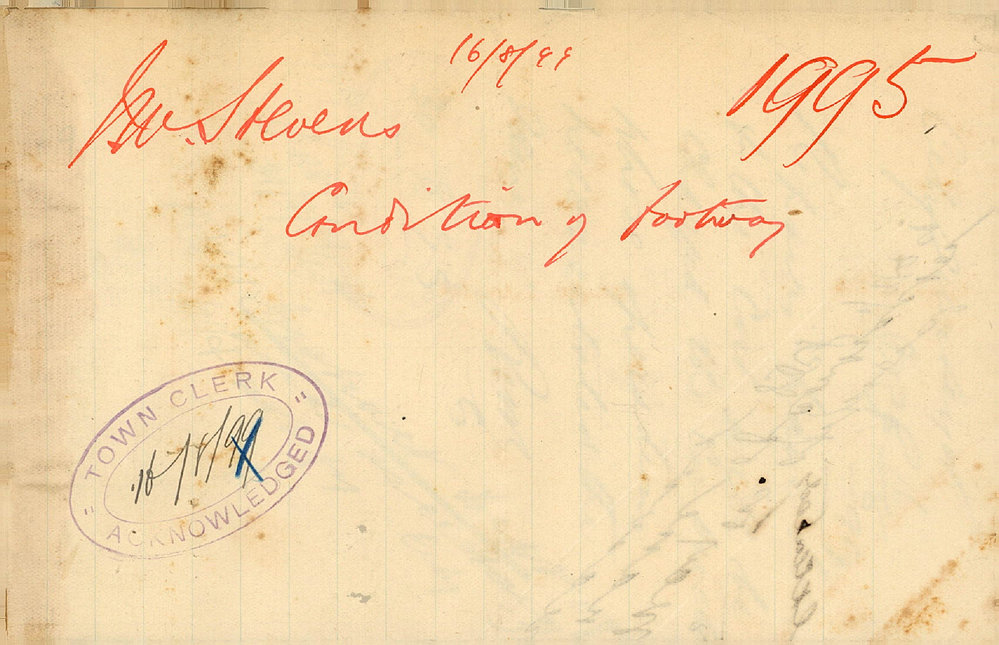 16/8/99
J.W. Stevens
1995
Condition of footway
" TOWN CLERK "
16/8/99
ACKNOWLEDGED